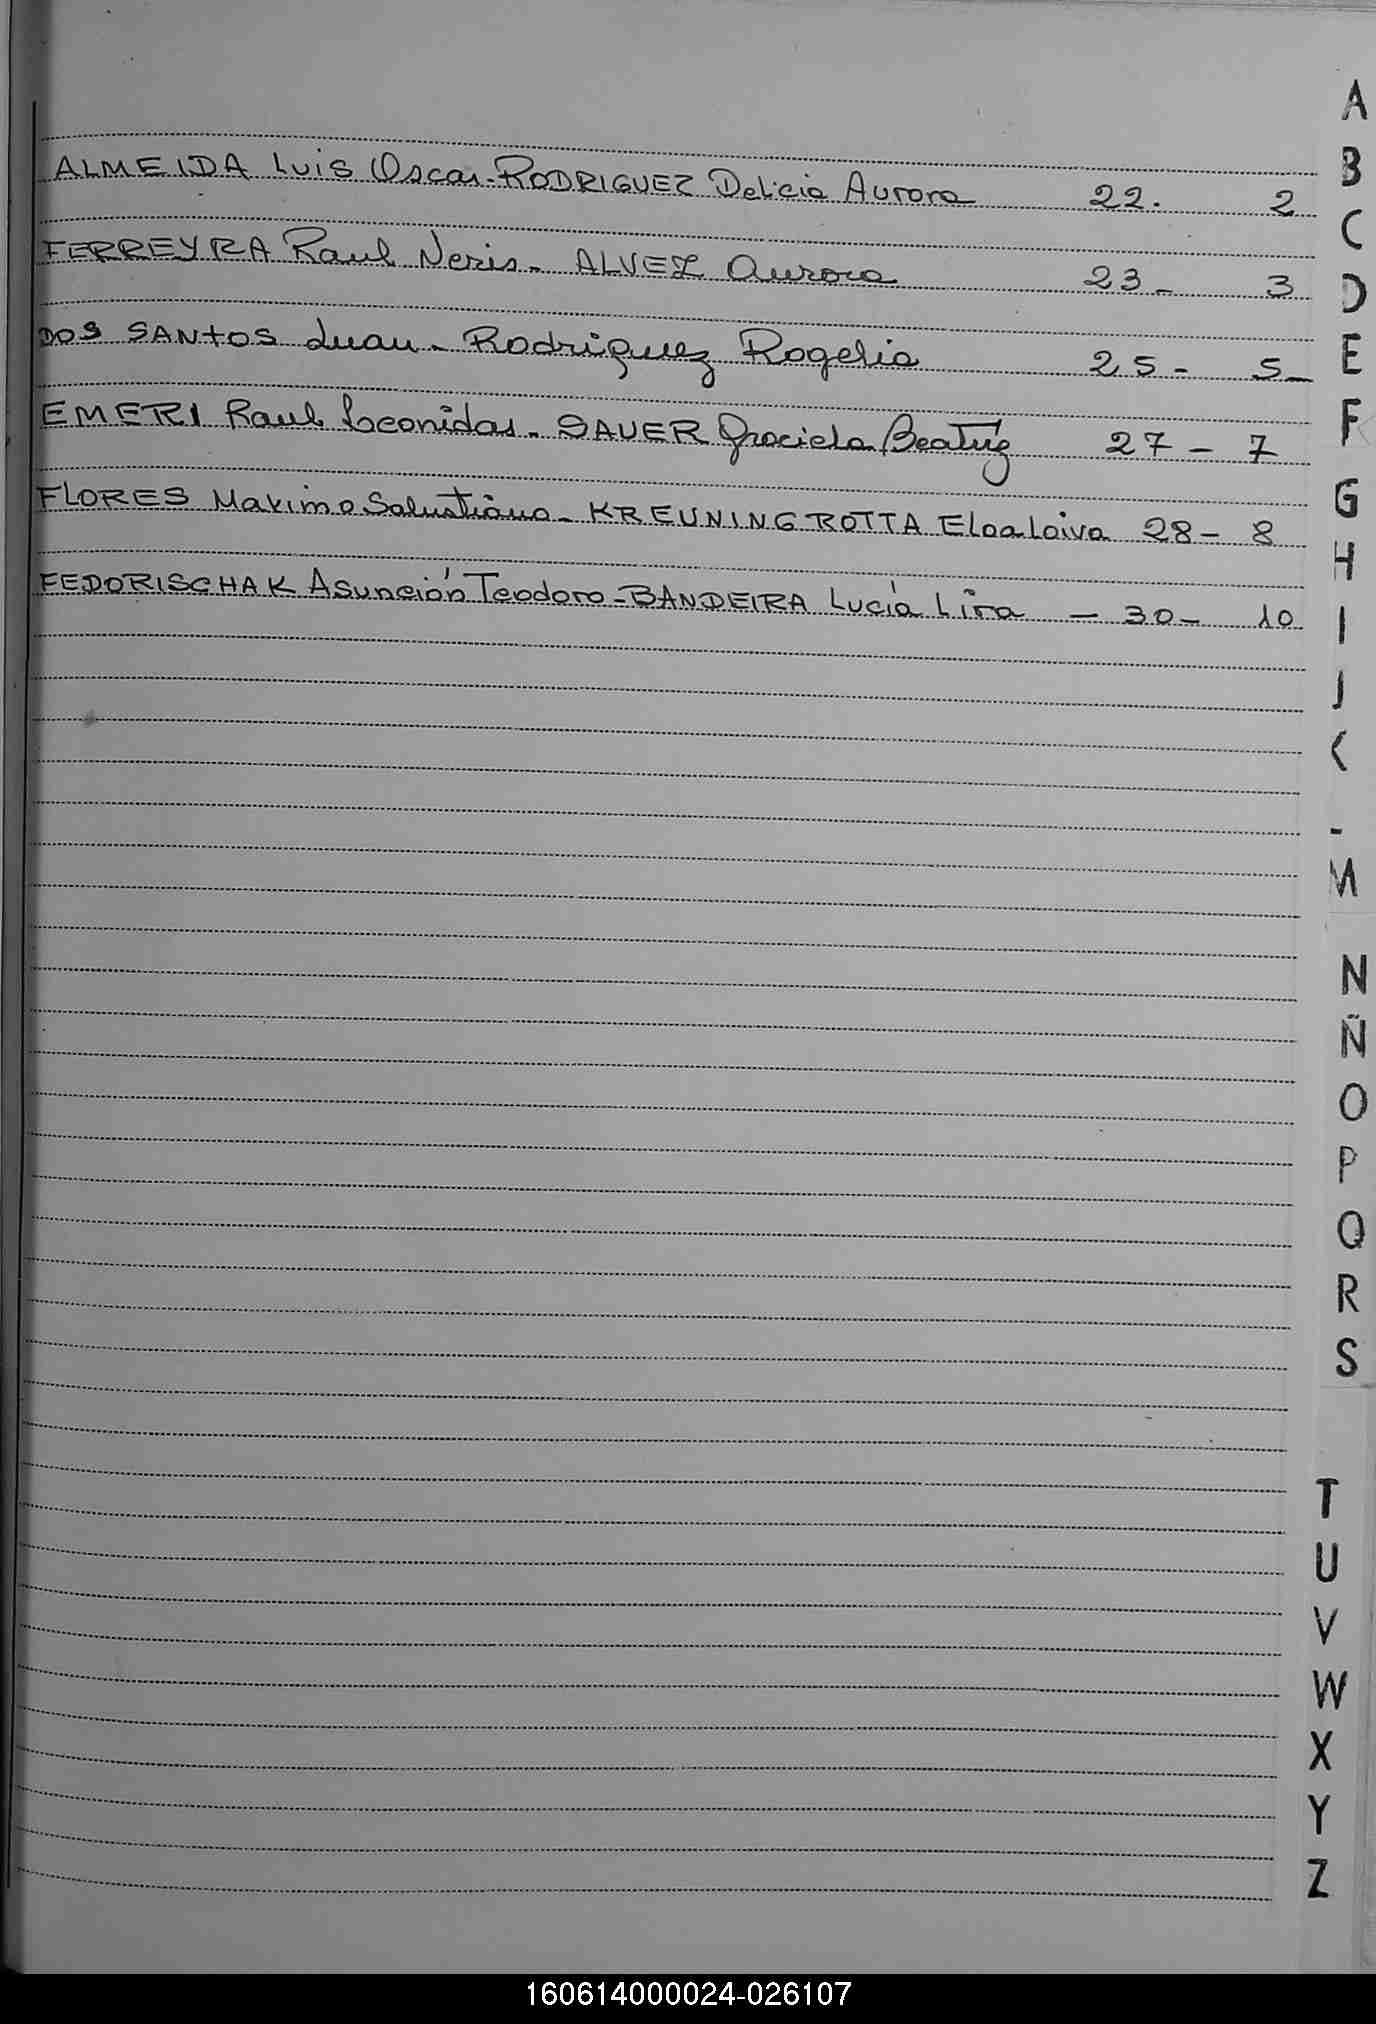 ALMEIDA Luis Oscar - RODRIGUEZ Delicia Aurora 22. 2
FERREYRA Raul Neris - ALVEZ Aurora 23 - 3
DOS SANTOS Juan - Rodriguez Rogelia 25 - 5 -
EMERI Raul Leonidas - SAUER Graciela Beatriz 27 - 7
FLORES Maximo Salustiano - KREUNING ROTTA Eloa Loiva 28 - 8
FEDORISCHAK Asunción Teodoro - BANDEIRA Lucía Lira - 30 - 10
A
B
C
D
E
F
G
H
I
J
K
M
N
Ñ
O
P
Q
R
S
T
U
V
W
X
Y
Z
160614000024-026107